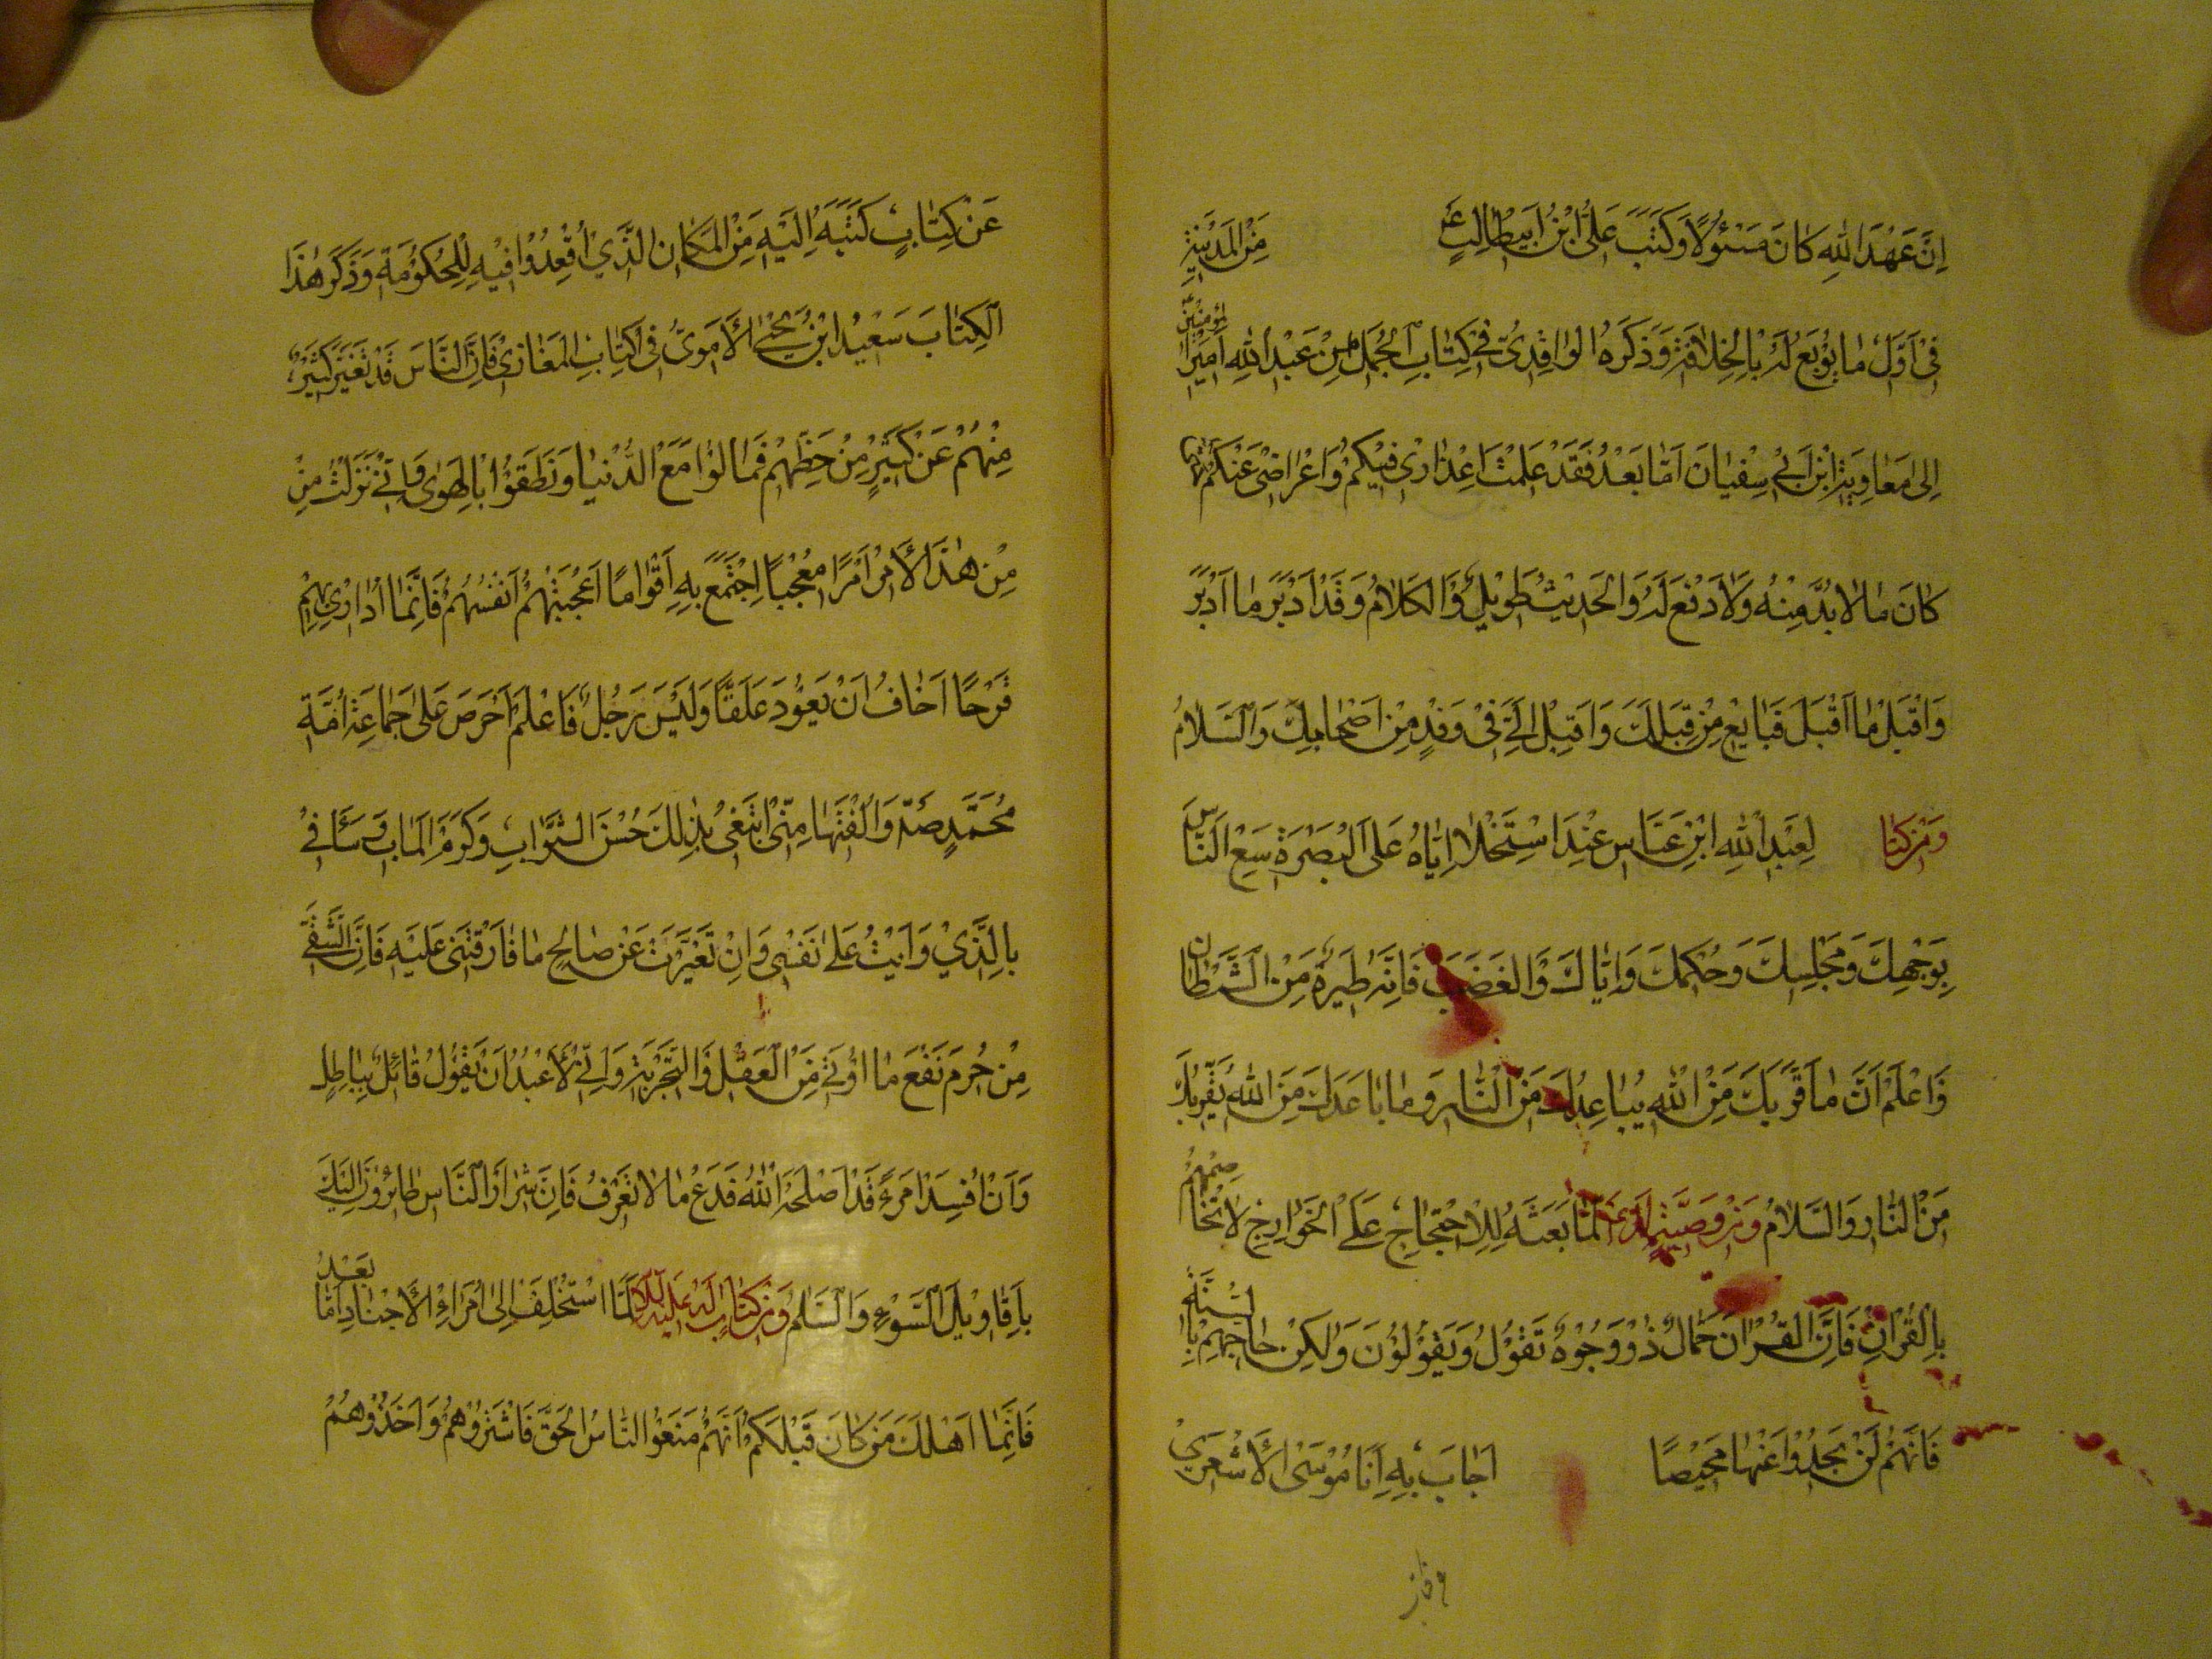 اِنَّ عَهْدَ اللهِ كَانَ مَسْئُولًا وَكَتَبَ عَلِىُّ ابْنُ اَبيطالِبٍ ع مِنَ الْمَدِيْنَةِ
فِىْ اَوَّلِ مٰا بُوْيِعَ لَهُ بِالْخِلٰافَةِ وَذَكَرَهُ الْوٰاقِدِىُّ فِىْ كِتٰابِ الْجُمَلِ مِنْ عَبْدِ اللهِ اَمِيْرِ الْمُؤْمِنِيْنَ
اِلىٰ مَعٰاوِيَةَ ابْنِ اَبِىْ سِفْيٰانَ اَمّٰا بَعْدُ فَقَدْ عَلِمْتَ اِعْذٰارِى فِيْكُمْ وَاِعْرٰاضِىْ عَنْكُمْ حَتّٰى
كٰانَ مٰا لٰا بُدَّ مِنْهُ وَلٰا دَفْعَ لَهُ وَالْحَدِيْثُ طَوِيْلٌ وَالْكَلٰامُ وَقَدْ اَدْبَرَ مٰا اَدْبَرَ
وَاَقْبَلَ مٰا اَقْبَلَ فَبٰايِعْ مِنْ قِبَلِكَ وَاَقْبِلْ اِلَىَّ فِىْ وَفْدٍ مِنْ اَصْحٰابِكَ وَالسَّلٰامُ
وَمِنْ كِتٰا لِعَبْدِ اللهِ ابْنِ عَبّٰاسٍ عِنْدَ اسْتِخْلٰا اِيّٰاهُ عَلَى الْبَصْرَةِ سَعِ النّٰاسَ
بِوَجْهِكَ وَمَجْلِسِكَ وَحُكْمِكَ وَاِيّٰاكَ وَالْغَضَبَ فَاِنَّهُ طَيْرَةٌ مِنَ الشَّيْطٰانِ
وَاعْلَمْ اَنَّ مٰا قَرَّبَكَ مِنَ اللهِ يُبٰاعِدُكَ مِنَ النّٰارِ وَمٰا بٰاعَدَكَ مِنَ اللهِ يُقَرِّبُكَ
مِنَ النّٰارِ وَالسَّلٰامُ وَمِنْ وَصِيَّتِهِ لَهُ لَمّٰا بَعَثَهُ لِلْاِحْتِجٰاجِ عَلَى الْخَوٰارِجِ لٰا تُخٰاصِمْهُمْ
بِالْقُرْاٰنِ فَاِنَّ الْقُرْاٰنَ حَمّٰالٌ ذُوْ وُجُوْهٍ تَقُوْلُ وَيَقُوْلُوْنَ وَلٰكِنْ حٰاجِهِمْ بِالسُّنَّةِ
فَاِنَّهُمْ لَنْ يَجِدُوْا عَنْهٰا مَحِيْصًا اَجٰابَ بِهِ اَبَا مُوْسَى الْاَشْعَرِيْ
عَنْ كِتٰابٍ كَتَبَهُ اِلَيْهِ مِنَ الْمَكٰانِ الَّذِيْ اُقْعِدُوْا فِيْهِ لِلْحُكُوْمَةِ وَذَكَرَ هٰذَا
الْكِتٰابَ سَعِيْدُ ابْنُ يَحْيٰى الْاَمَوِىُّ فِى كِتٰابِ الْمَغٰازِىْ فَاِنَّ النّٰاسَ قَدْ تَغَيَّرَ كَثِيْرٌ
مِنْهُمْ عَنْ كَثِيْرٍ مِنْ حَظِّهِمْ فَمٰالُوْا مَعَ الدُّنْيٰا وَنَطَقُوْا بِالْهَوٰى وَاِنِّىْ نَزَلْتُ مِنْ
مِنْ هٰذَا الْاَمْرِ اَمْرًا مُعْجِبًا اِجْتَمَعَ بِهِ اَقْوٰامًا اَعْجَبَتْهُمْ اَنْفُسُهُمْ فَاِنَّمٰا اُدٰاوِيْ مِنْهُمْ
قَرْحًا اَخٰافُ اَنْ يَعُوْدَ عَلَقًا وَلَيْسَ رَجُلٌ فَاعْلَمْ اَحْرَصَ عَلىٰ جَمٰاعَةِ اُمَّةِ
مُحَمَّدٍ صَهٓ وَاُلْفَتِهٰا مِنِّىْ اَبْتَغِىْ بِذٰلِكَ حُسْنَ الثَّوٰابِ وَكَرَمَ الْمَاٰبِ وَسَاَفِىْ
بِالَّذِيْ وَاَيْتُ عَلىٰ نَفْسِى وَاِنْ تَغَيَّرْتَ عَنْ صٰالِحِ مٰا فٰارَقْتَنِى عَلَيْهِ فَاِنَّ الشَّقِىَّ
مِنْ حُرِمَ نَفْعَ مٰا اُوْتِىَ مِنَ الْعَقْلِ وَالتَّجْرِبَةِ وَاِنِّىْ لَاَعْبَدُ اَنْ يَقُوْلَ قٰائِلٌ بِبٰاطِلٍ
وَاَنْ اُفْسِدَ اَمْرًا قَدْ اَصْلَحَهُ اللهُ فَدَعْ مٰا لٰا تَعْرِفُ فَاِنَّ شِرٰارَ النّٰاسِ طٰائِرُوْنَ اِلَيْكَ
بِاَقٰاوِيْلِ السَّوْءِ وَالسَّلٰمُ وَمِنْ كِتٰابٍ لَهُ عَلَيْهِ السَّلٰامُ لَمَّا اسْتُخْلِفَ اِلىٰ اُمَرٰاءِ الْاَجْنٰادِ اَمّٰا بَعْدُ
فَاِنَّمٰا اَهْلَكَ مَنْ كٰانَ قَبْلَكُمْ اَنَّهُمْ مَنَعُوْا النّٰاسَ الْحَقَّ فَاشْتَرَوْهُمْ وَاَخَذُوْهُمْ